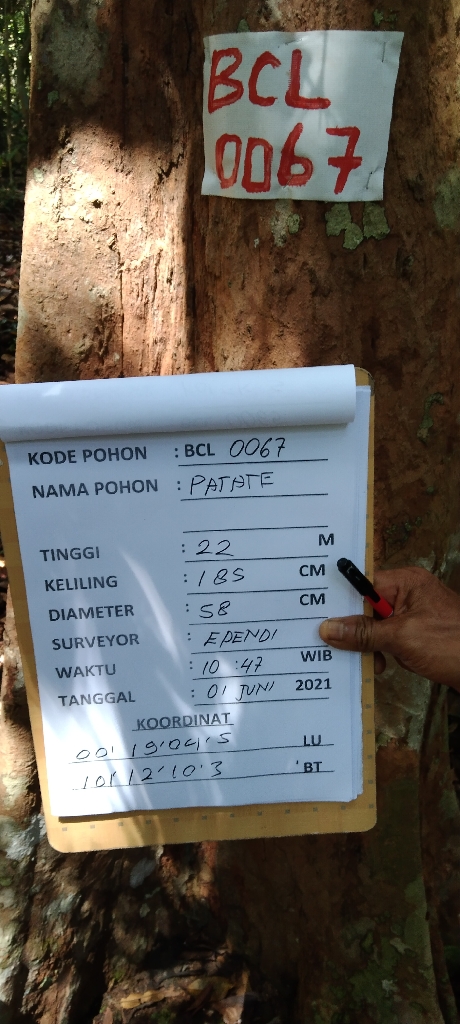 BCL
0067
KODE POHON : BCL 0067
NAMA POHON : PATATE
TINGGI : 22 M
KELILING : 185 CM
DIAMETER : 58 CM
SURVEYOR : EPENDI
WAKTU : 10:47 WIB
TANGGAL : 01 JUNI 2021
KOORDINAT
00' 19'04'5 LU
101' 12'10'3 'BT